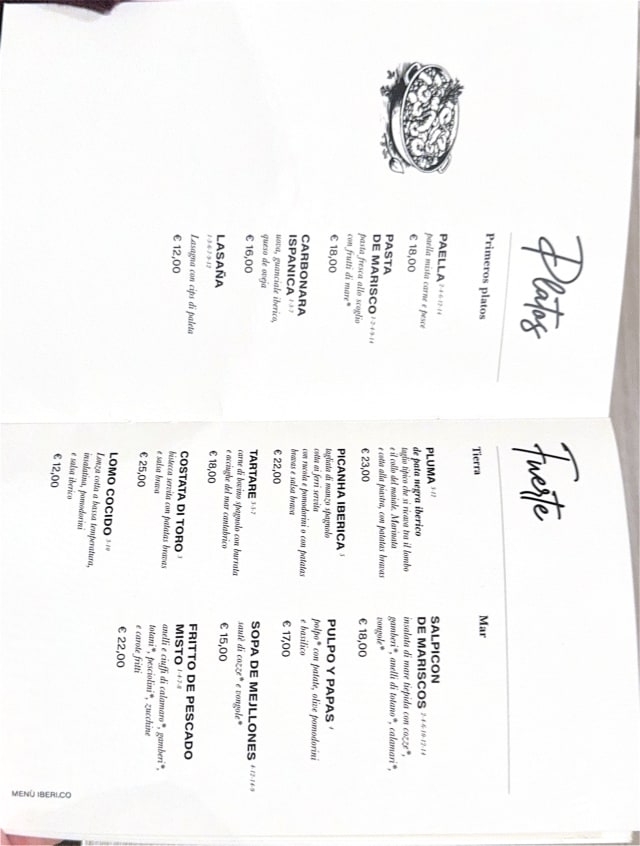 Platos
Primeros platos
PAELLA 2-4-6-12-14
paella mista carne e pesce
€ 18,00
PASTA
DE MARISCO 1-2-4-9-14
pasta fresca allo scoglio
con frutti di mare*
€ 18,00
CARBONARA
ISPANICA 1-3-7
uova, guanciale iberico,
queso de oveja
€ 16,00
LASAÑA
Lasagna con cips di paleta
€ 12,00
Fuerte
Tierra
PLUMA
de pata negra iberico
taglio tipico che si ricava tra il lombo
e il collo del maiale. Marinata
e cotta alla piastra, con patatas bravas
€ 23,00
PICANHA IBERICA
tagliata di manzo spagnolo
cotta ai ferri servita
con rucola e pomodorini o con patatas
bravas e salsa brava
€ 22,00
TARTARE
carne di bovino spagnolo con burrata
e acciughe del mar cantabrico
€ 18,00
COSTATA DI TORO
bistecca servita con patatas bravas
e salsa brava
€ 25,00
LOMO COCIDO
Lonza cotta a bassa temperatura,
insalatina, pomodorini
e salsa iberico
€ 12,00
Mar
SALPICON
DE MARISCOS 2-4-6-10-12-14
insalata di mare tiepida con cozze*,
gamberi*, anelli di totano*, calamari*,
vongole*
€ 18,00
PULPO Y PAPAS
polpo* con patate, olive pomodorini
e basilico
€ 17,00
SOPA DE MEJLLONES
sautè di cozze* e vongole*
€ 15,00
FRITTO DE PESCADO
MISTO
anelli e ciuffi di calamaro*, gamberi*,
totani*, pesciolini*, zucchine
e carote fritti
€ 22,00
MENÙ IBERI.CO